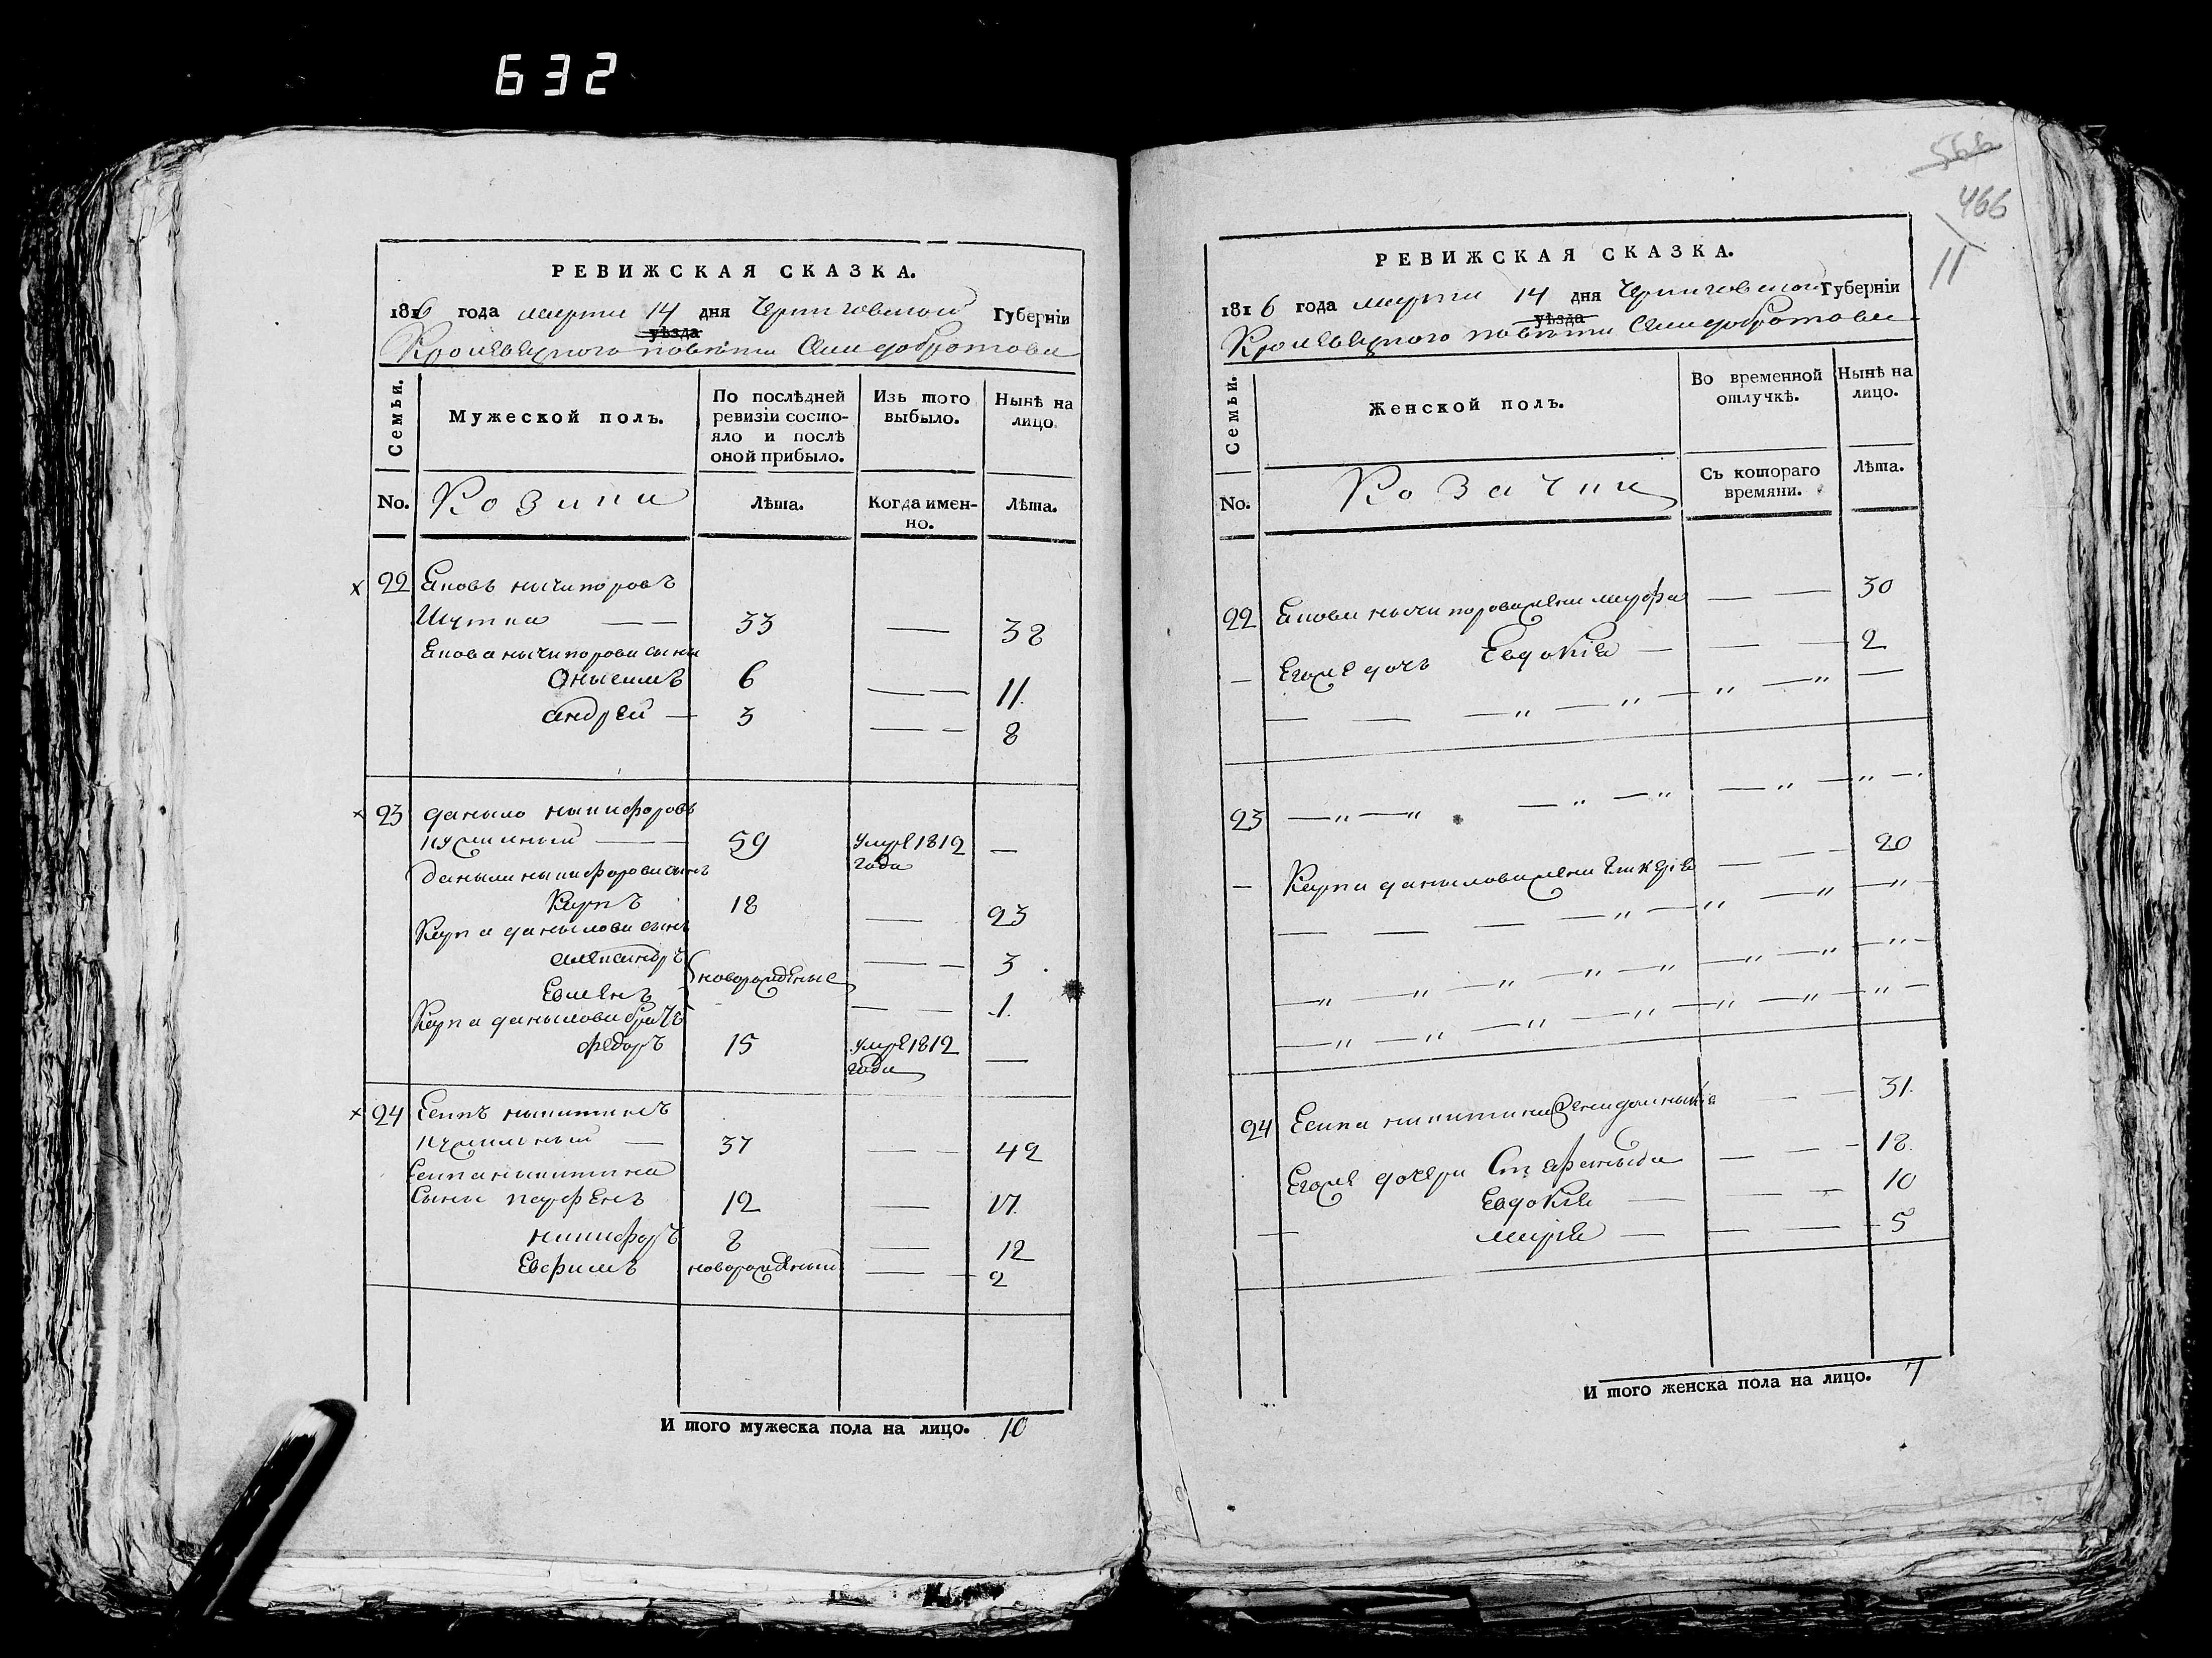 632
РЕВИЖСКАЯ СКАЗКА.
1816 года марта 14 дня Черниговской Губерніи
уѣзда
Кролевецкого повѣта села Добротова
Семьи.
Мужеской полъ.
По послѣдней ревизіи состояло и послѣ оной прибыло.
Изъ того выбыло.
Нынѣ на лицо.
No.
Козаки
Лѣта.
Когда именно.
Лѣта.
22 Яковъ нычипоровъ
Шутка 33 — 38
Якова нычипорова сыны
Онысимъ 6 — 11.
андрей 3 — 8
23 даныло никифоровъ
59 умре 1812 года —
данила никифорова сынъ
Карпъ 18 — 23
Карпа данылова сыны
александръ новорожденые — 3
1.
Карпа данылова братъ
федоръ 15 умре 1812 года —
24 Есипъ никитинъ
37 — 42
Есипа никитина
сыны парфенъ 12 — 17.
никифоръ 8 — 12
Евфимъ новорожденый — 2
И того мужеска пола на лицо. 10
566
466
11
РЕВИЖСКАЯ СКАЗКА.
1816 года марта 14 дня Черниговской Губерніи
уѣзда
Кролевецкого повѣта села Добротова
Семьи.
Женской полъ.
Во временной отлучкѣ.
Нынѣ на лицо.
No.
Козачки
Съ котораго времяни.
Лѣта.
22 Якова нычипорова жена марфа — 30
Его же дочь Евдокія — 2
23
Карпа данылова жена Гликерія — 20
24 Есипа никитина жена домникія — 31.
Его же дочери Стефаныда — 18.
Евдокія — 10
марія — 5
И того женска пола на лицо. 7